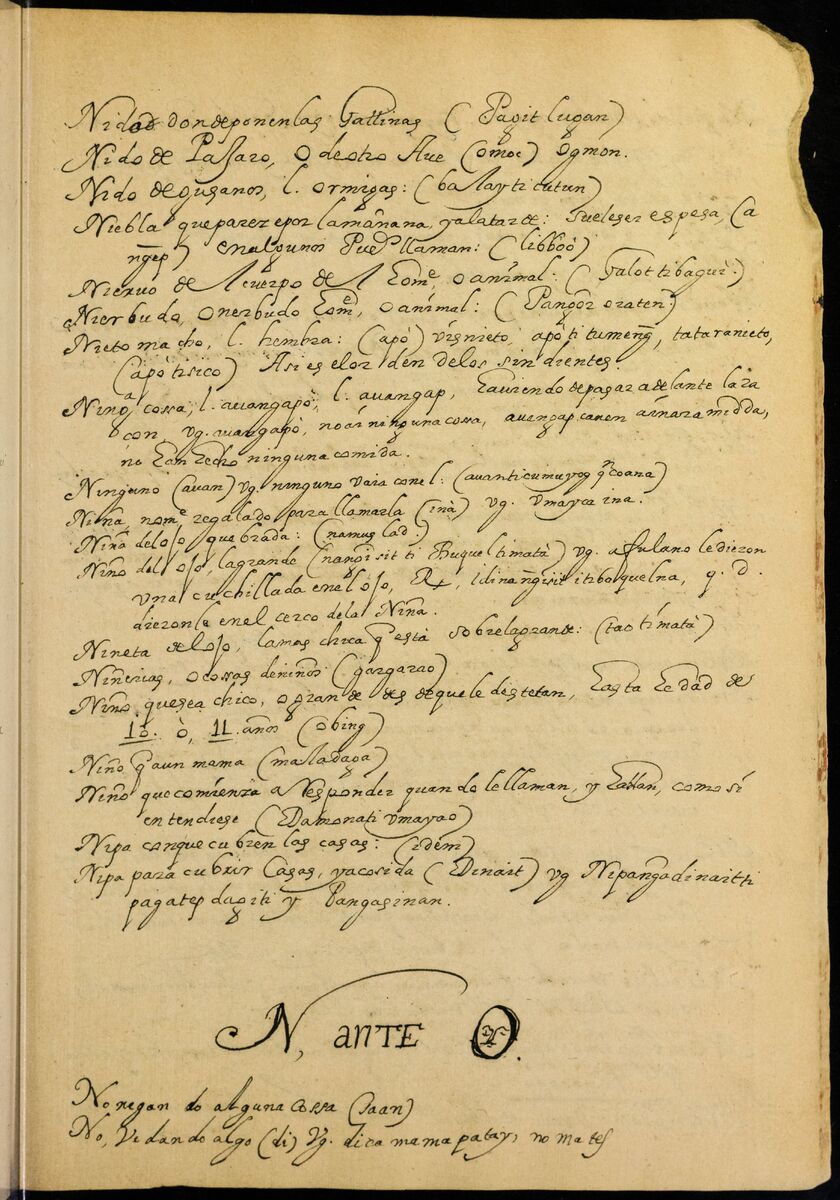 Nido donde ponen las Gallinas ( Pagit lugan )
Nido de Passaro, o de otro Ave (omoc) ogmon.
Nido de gusanos, l. ormigas: (balay ti cutun)
Niebla que pareze por la mañana, y a la tarde: suele ser espesa, (a
ngep) en algunos Pueᵒˢ llaman: (libboò)
Nieruo del cuerpo del Homᵉ, o animal: (
Nierbudo, o nerbudo Homᵉ, o animal: (
Nieto macho, l. hembra: (apò) visnieto, apò ti tumeng, tataranieto,
(apò ti sico) Asi es el orden de los sin dientes.
Nina cossa, l. auangapò, l. auangap, hauiendo de pasar adelante la ra
con, vg. auangapò, no ai ninguna cossa,
no han hecho ninguna comida.
Ninguno (auan) vg. ninguno vaia con el: (auan ti cumuyog
Niña, nomᵉ regalado para llamarla (inà) vg. vmayca ina.
Niña del ojo quebrada: (namuslad.)
Niña del ojo, la grande ( ti timatà) vg. a fulano le dieron
vna cuchillada en el ojo, q. d.
dieronle en el cerco de la Niña.
Nineta del ojo, la mas chica q̃ està sobre la grande: (tao ti matà)
Niñerias, o cossas de niños (gargarao)
Niño que sea chico, o grande desde que le destetan, hasta hedad de
10. ò, 11. años (obing)
Niño q̃ aun mama (maladaga)
Niño que comienza a Responder quando le llaman, y hablan, como si
entendiese ( vmayao)
Nipa con que cubren las casas: (idem)
Nipa para cubrir Casas, ya cosida (Dinait) vg Nipanga dinait ti
pagatep dagiti y Pangasinan.
N, ANTE O.
No negando alguna cossa (saan)
No, Vedando algo (di) Vg. dica mamapatay, no mates